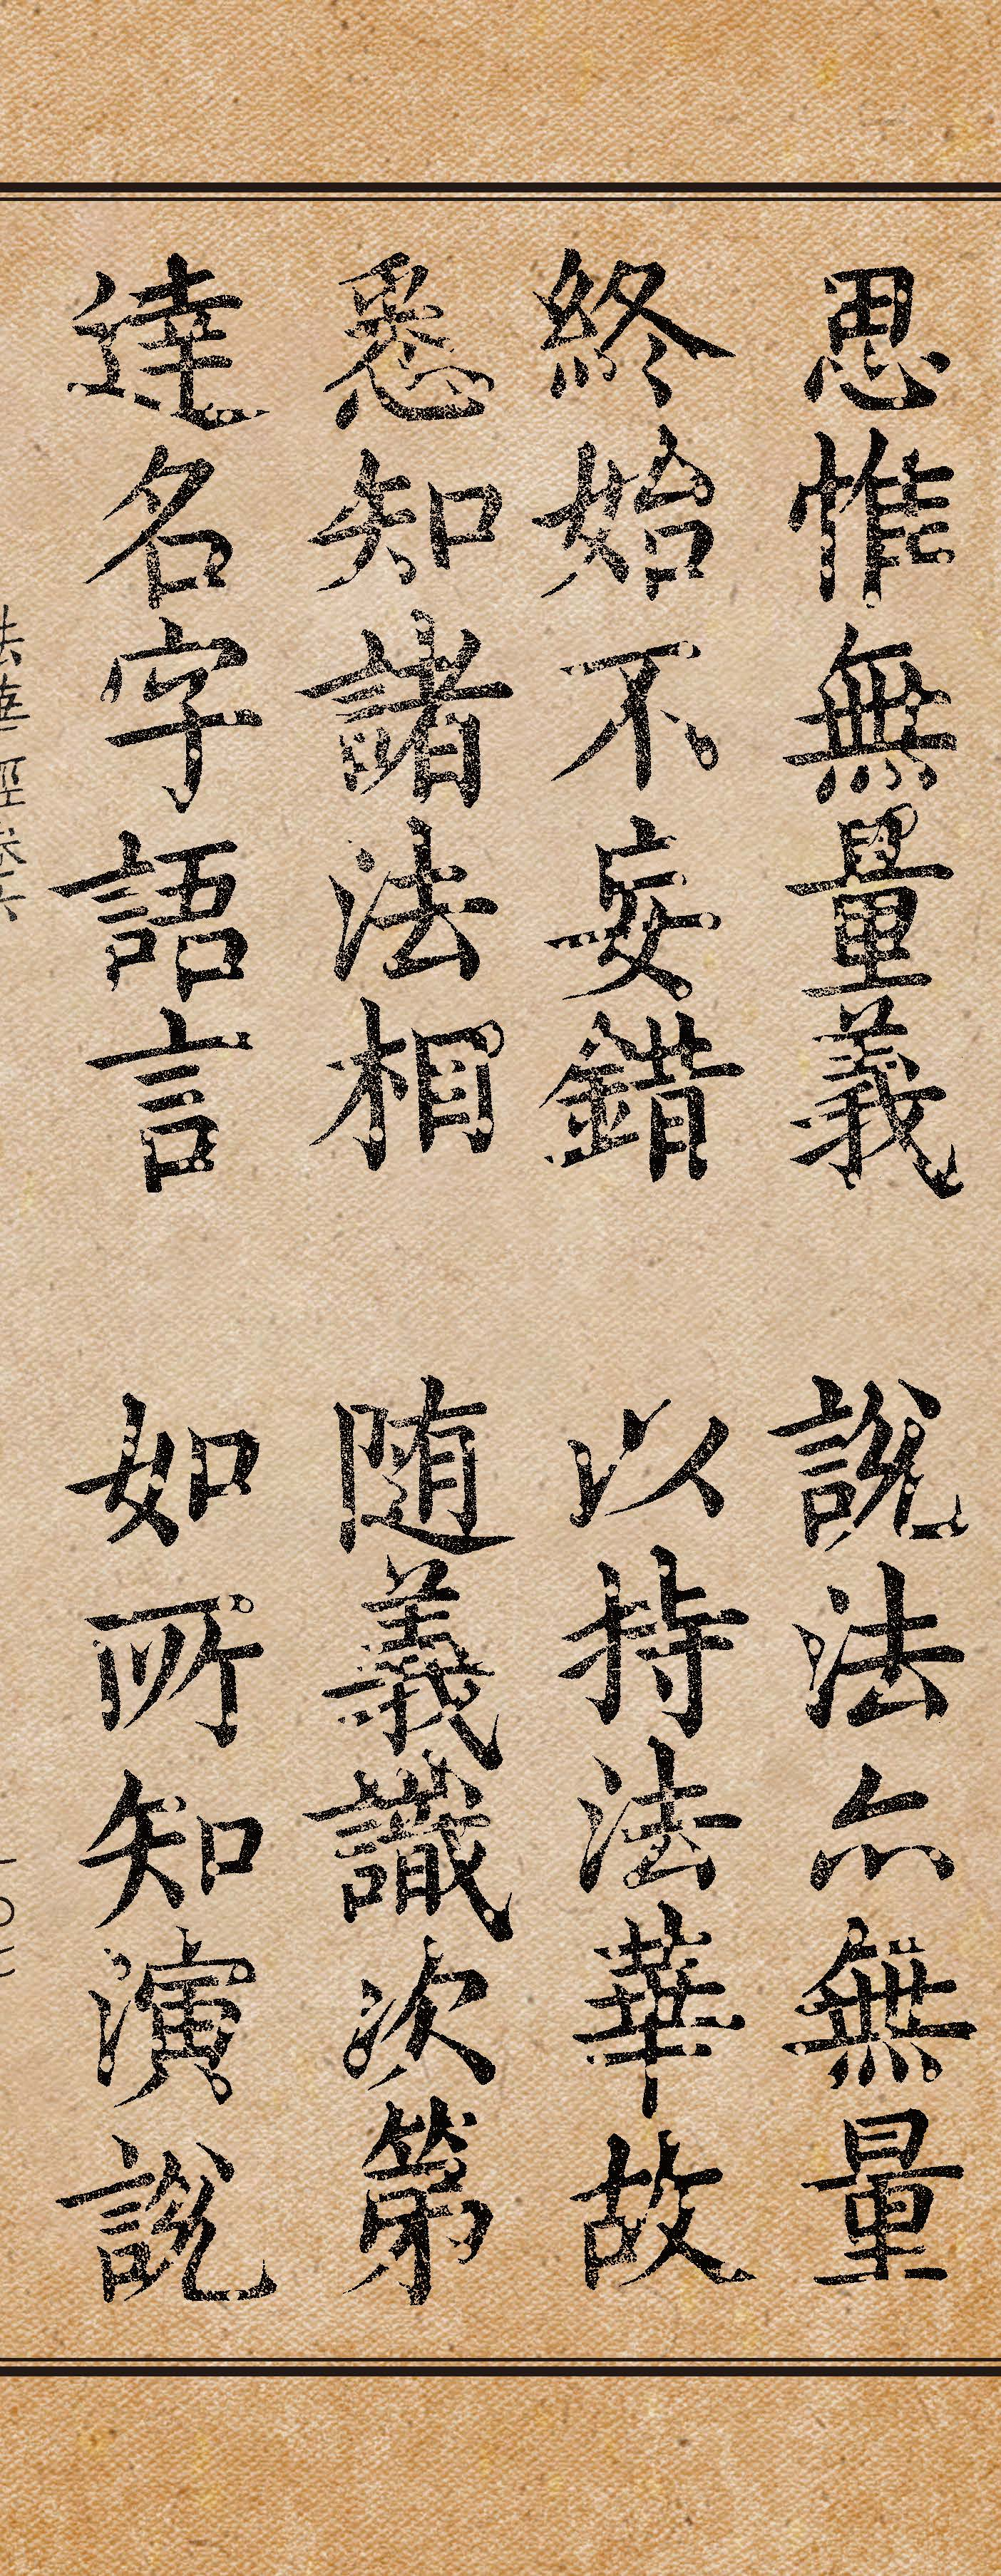 思惟無量義　說法亦無量
終始不妄錯　以持法華故
悉知諸法相　随義識次第
達名字語言　如所知演說
法華經卷六
一〇七